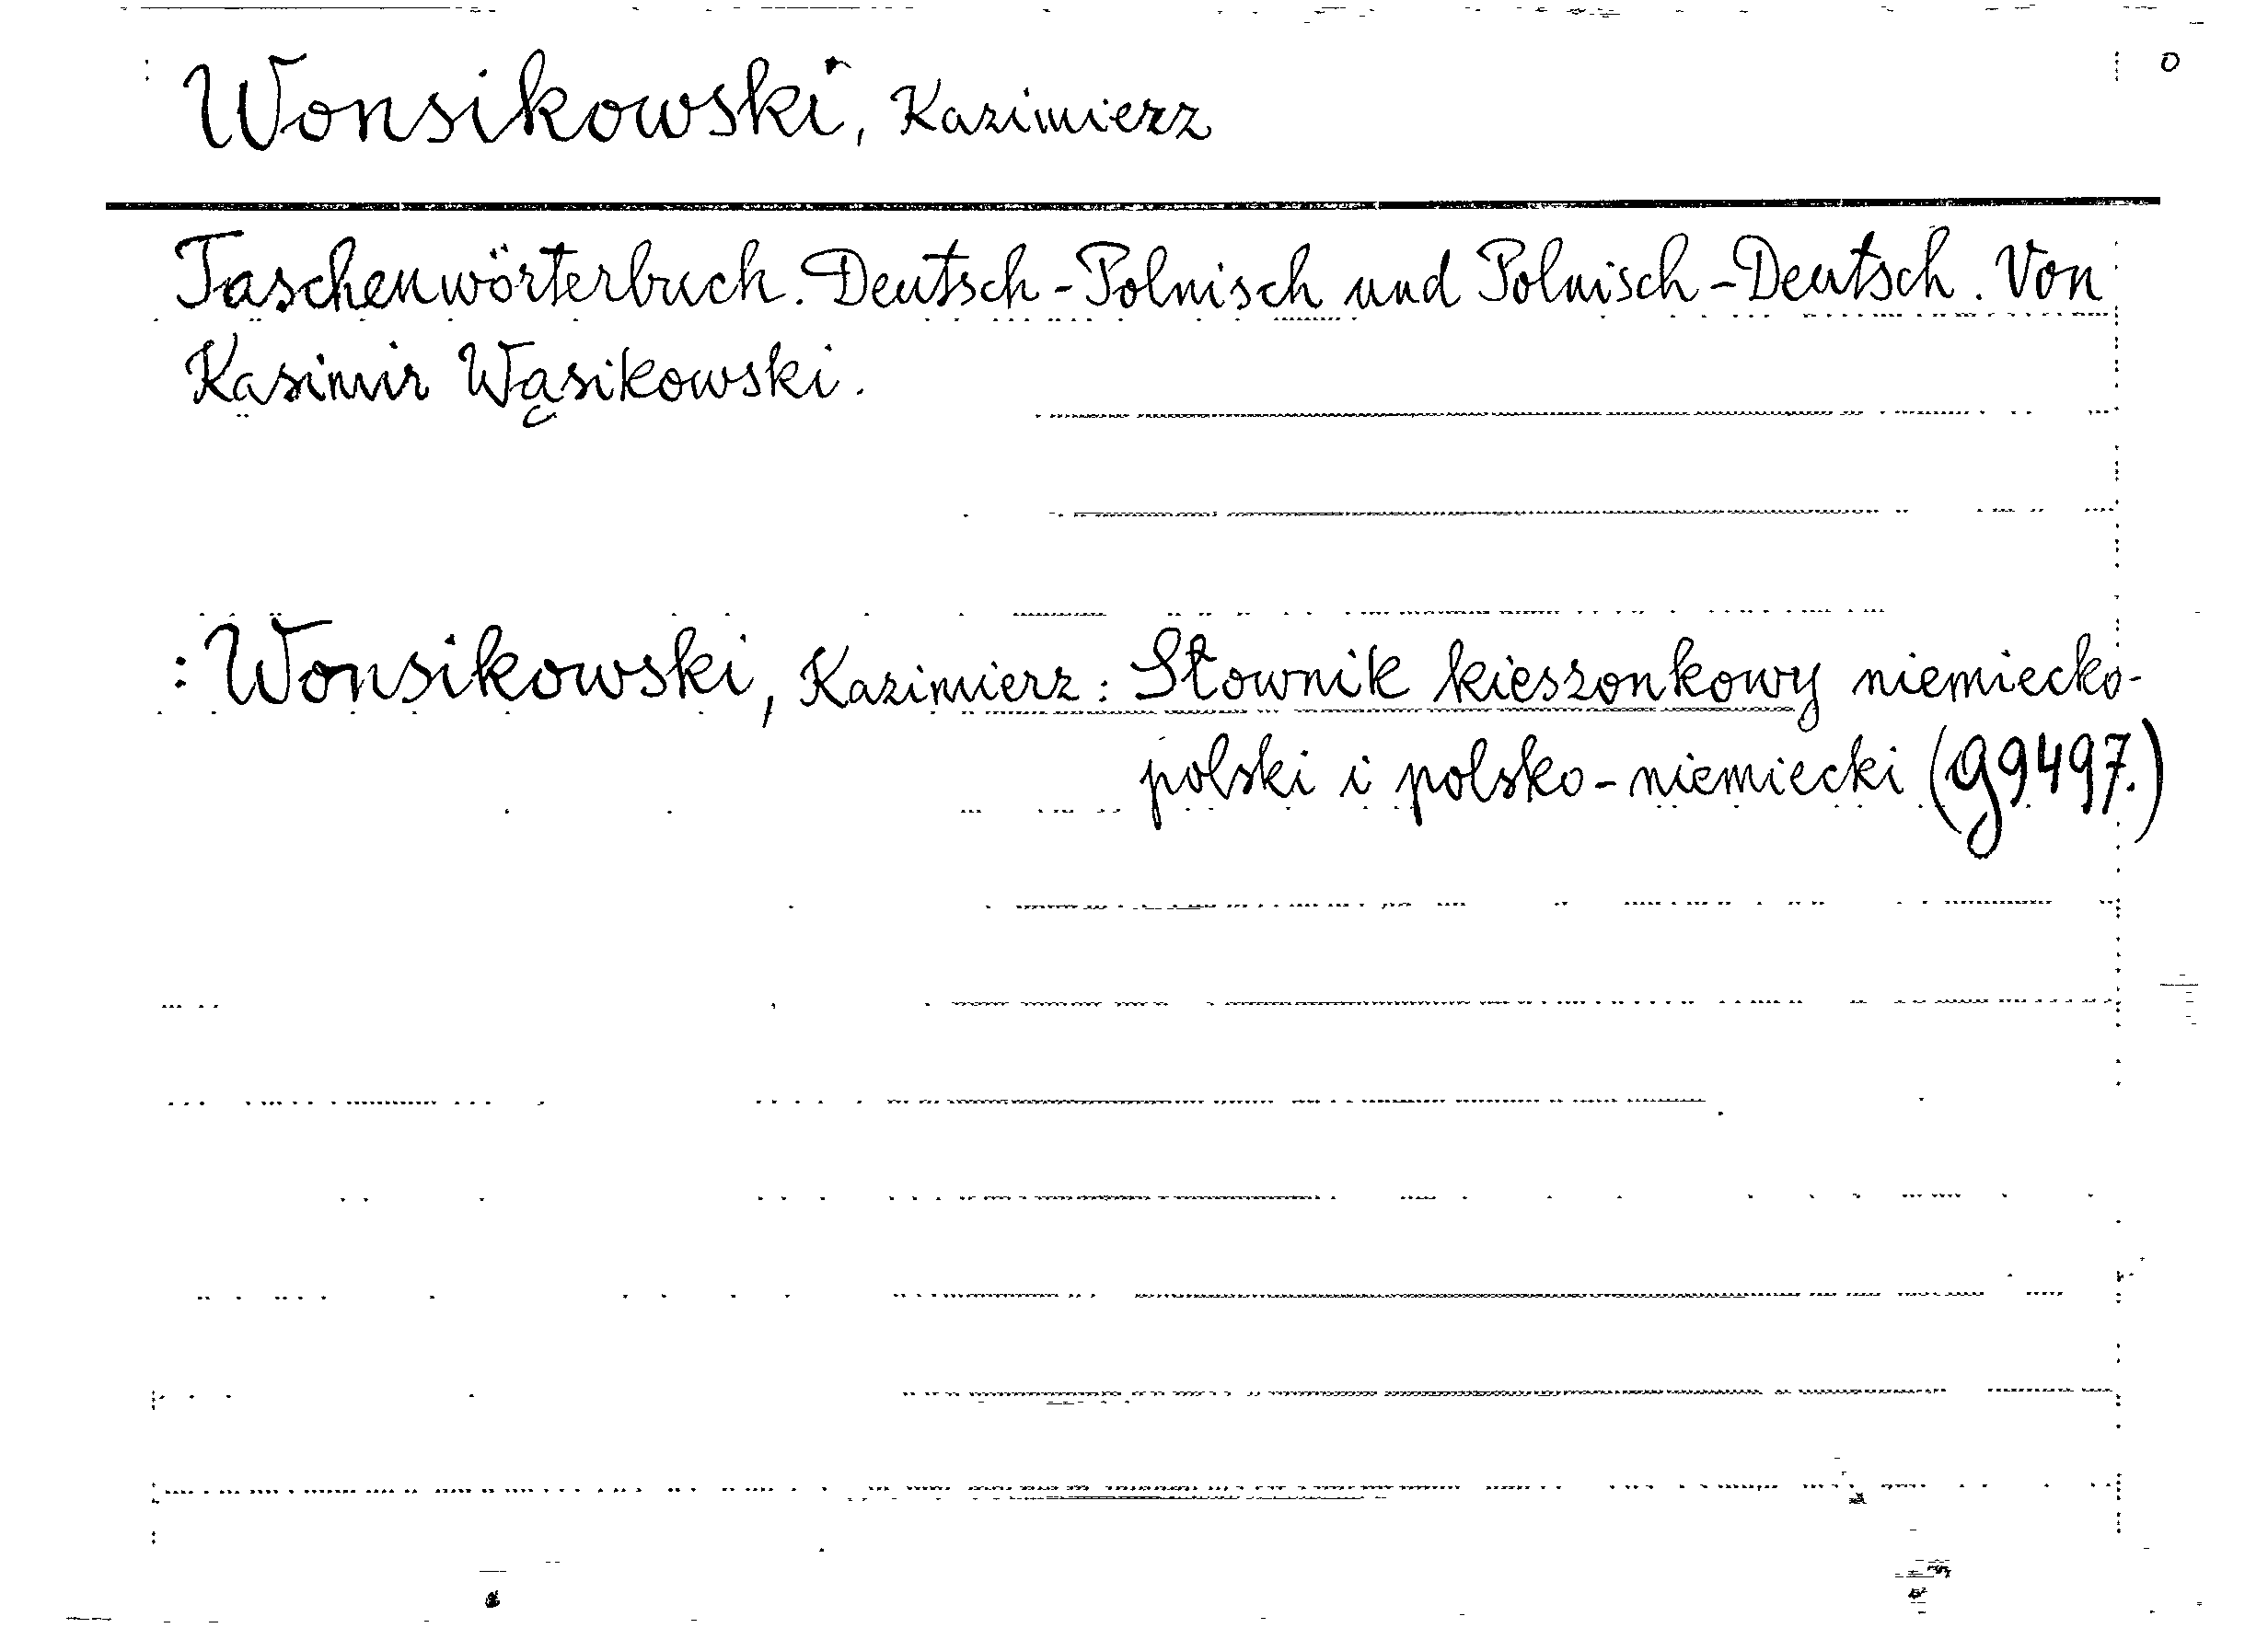 Wonsikowski, Kazimierz
o
Taschenwörterbuch. Deutsch-Polnisch und Polnisch-Deutsch. Von
Kasimir Wąsikowski.
: Wonsikowski, Kazimierz: Słownik kieszonkowy niemiecko-
polski i polsko-niemiecki (g9497.)